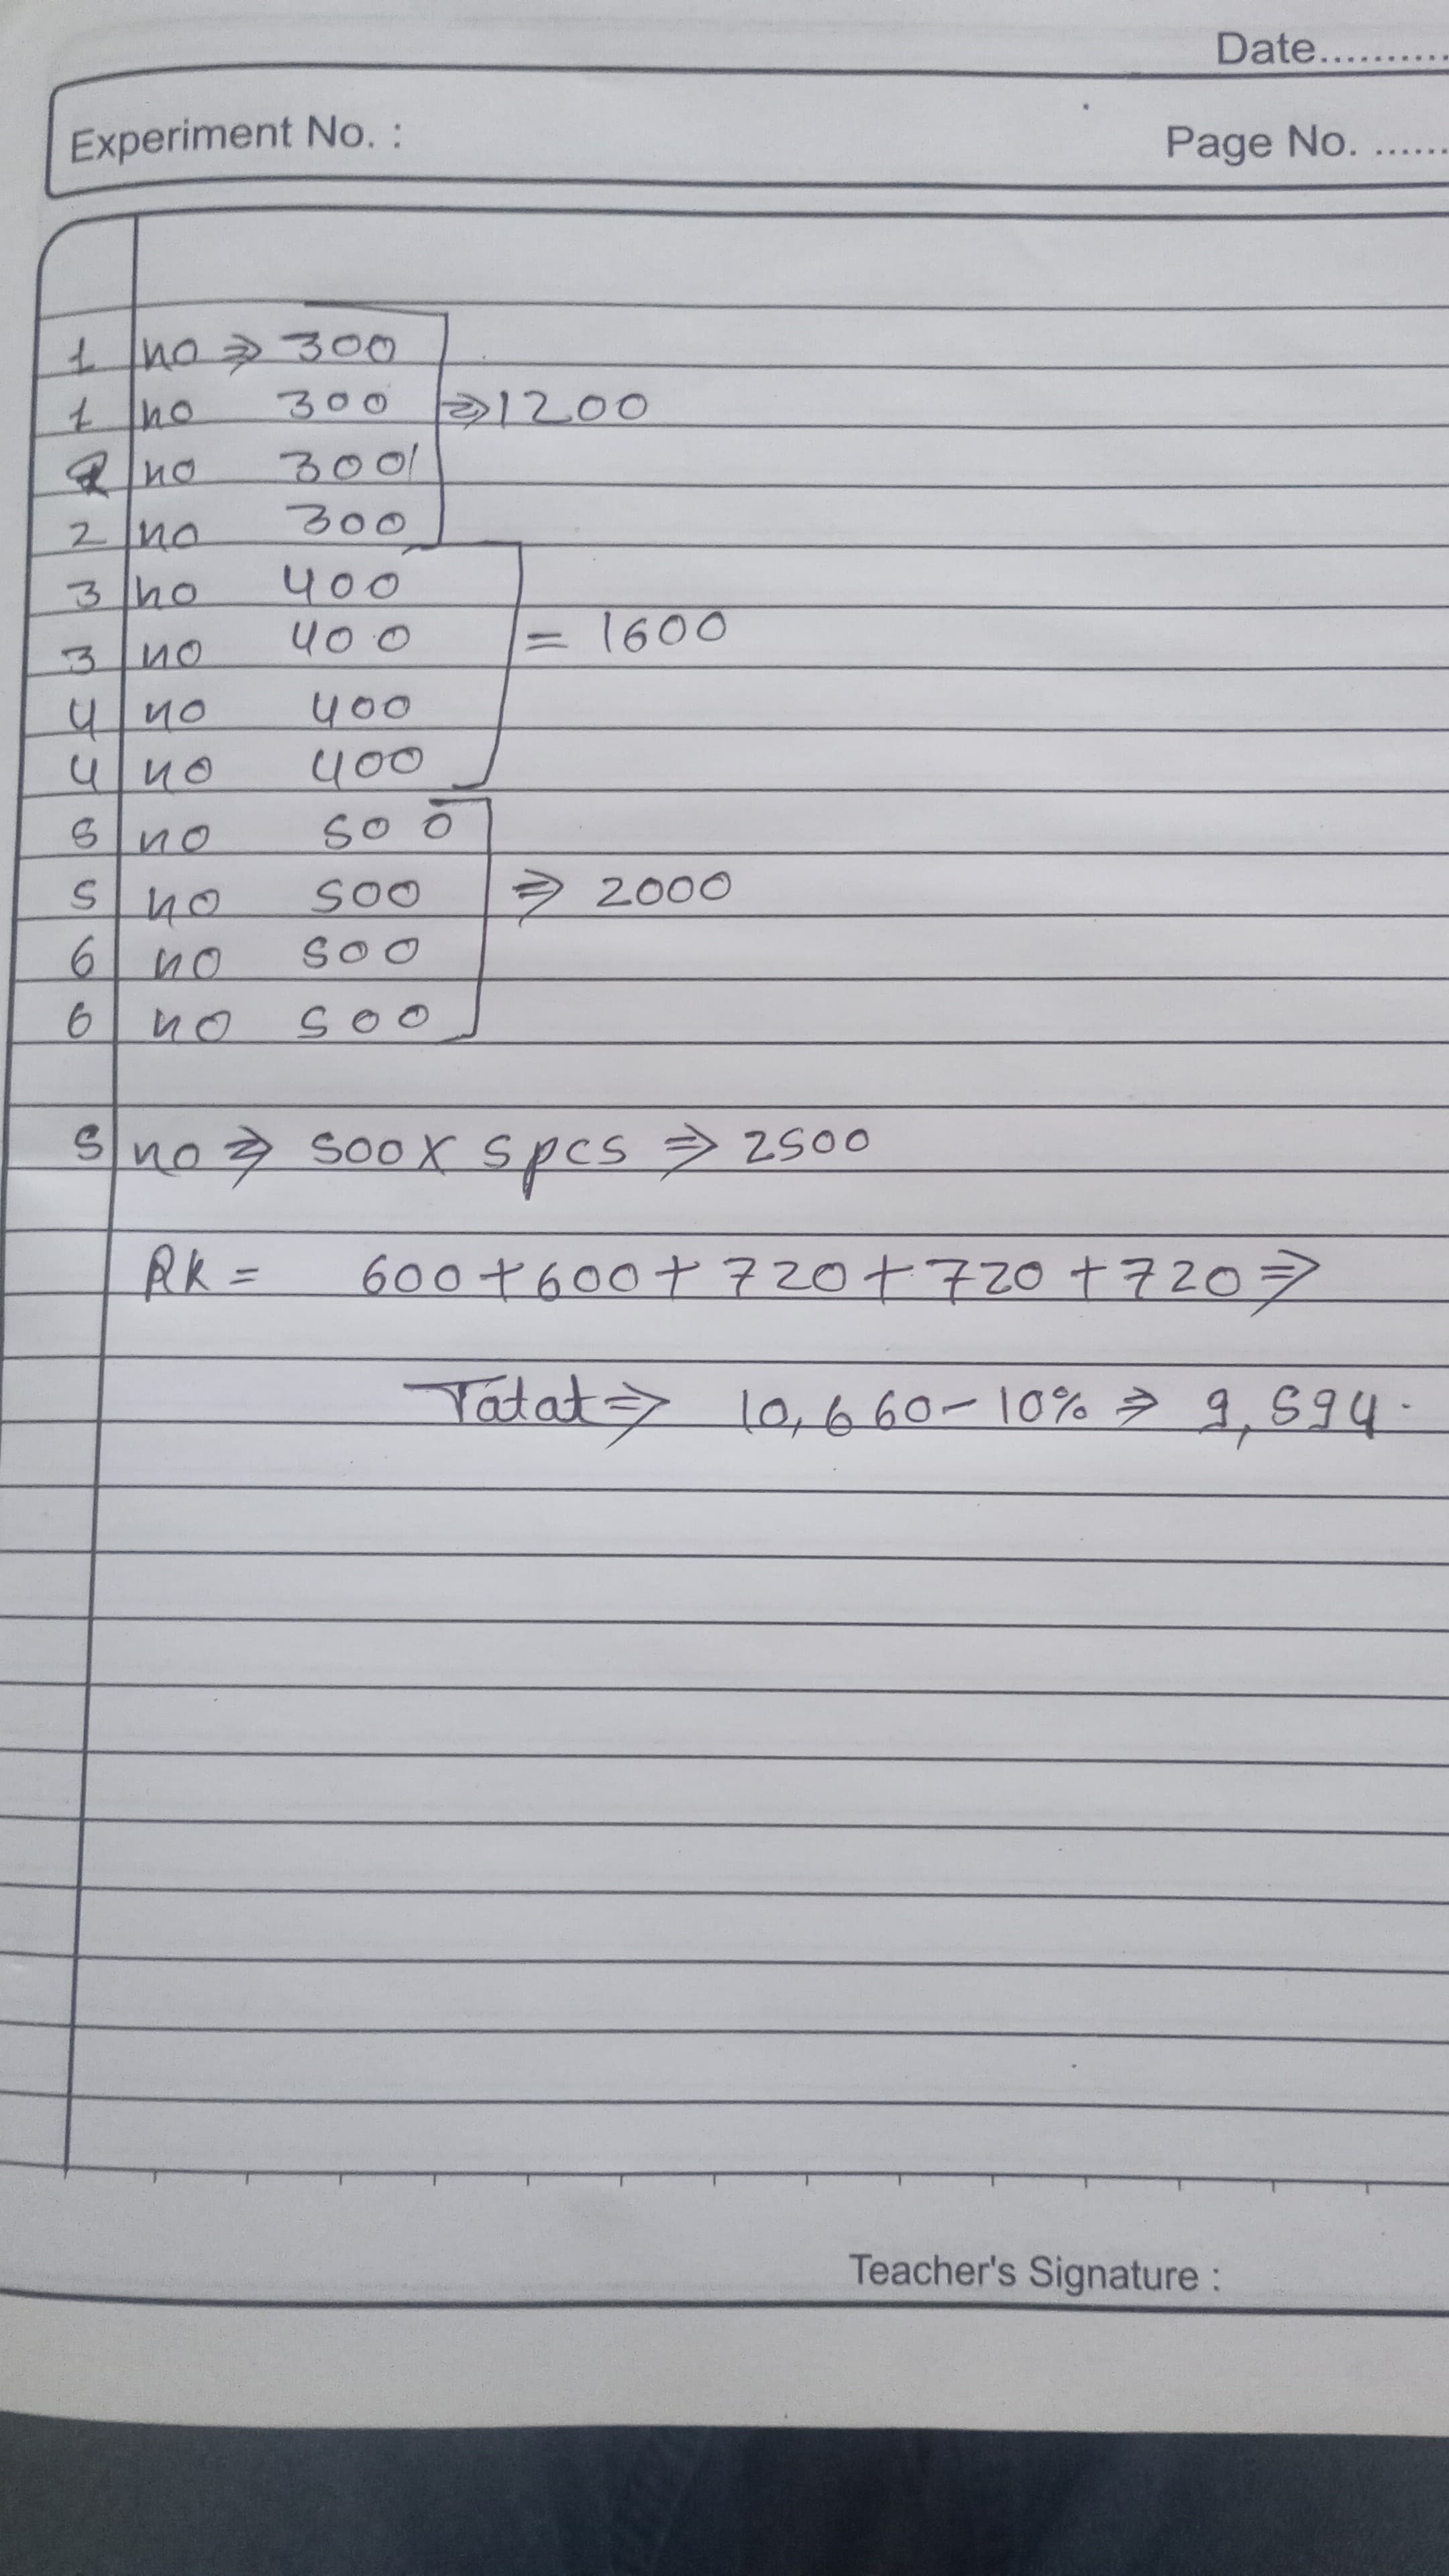 Date..........
Experiment No. :
Page No. ......
1 no ⇒ 300
1 no 300 ⇒ 1200
2 no 300
2 no 300
3 no 400
3 no 400 = 1600
4 no 400
4 no 400
5 no 500
5 no 500 ⇒ 2000
6 no 500
6 no 500
5 no ⇒ 500 x 5 pcs ⇒ 2500
RK = 600 + 600 + 720 + 720 + 720 ⇒
Totat ⇒ 10,660 - 10% ⇒ 9,594.
Teacher's Signature :